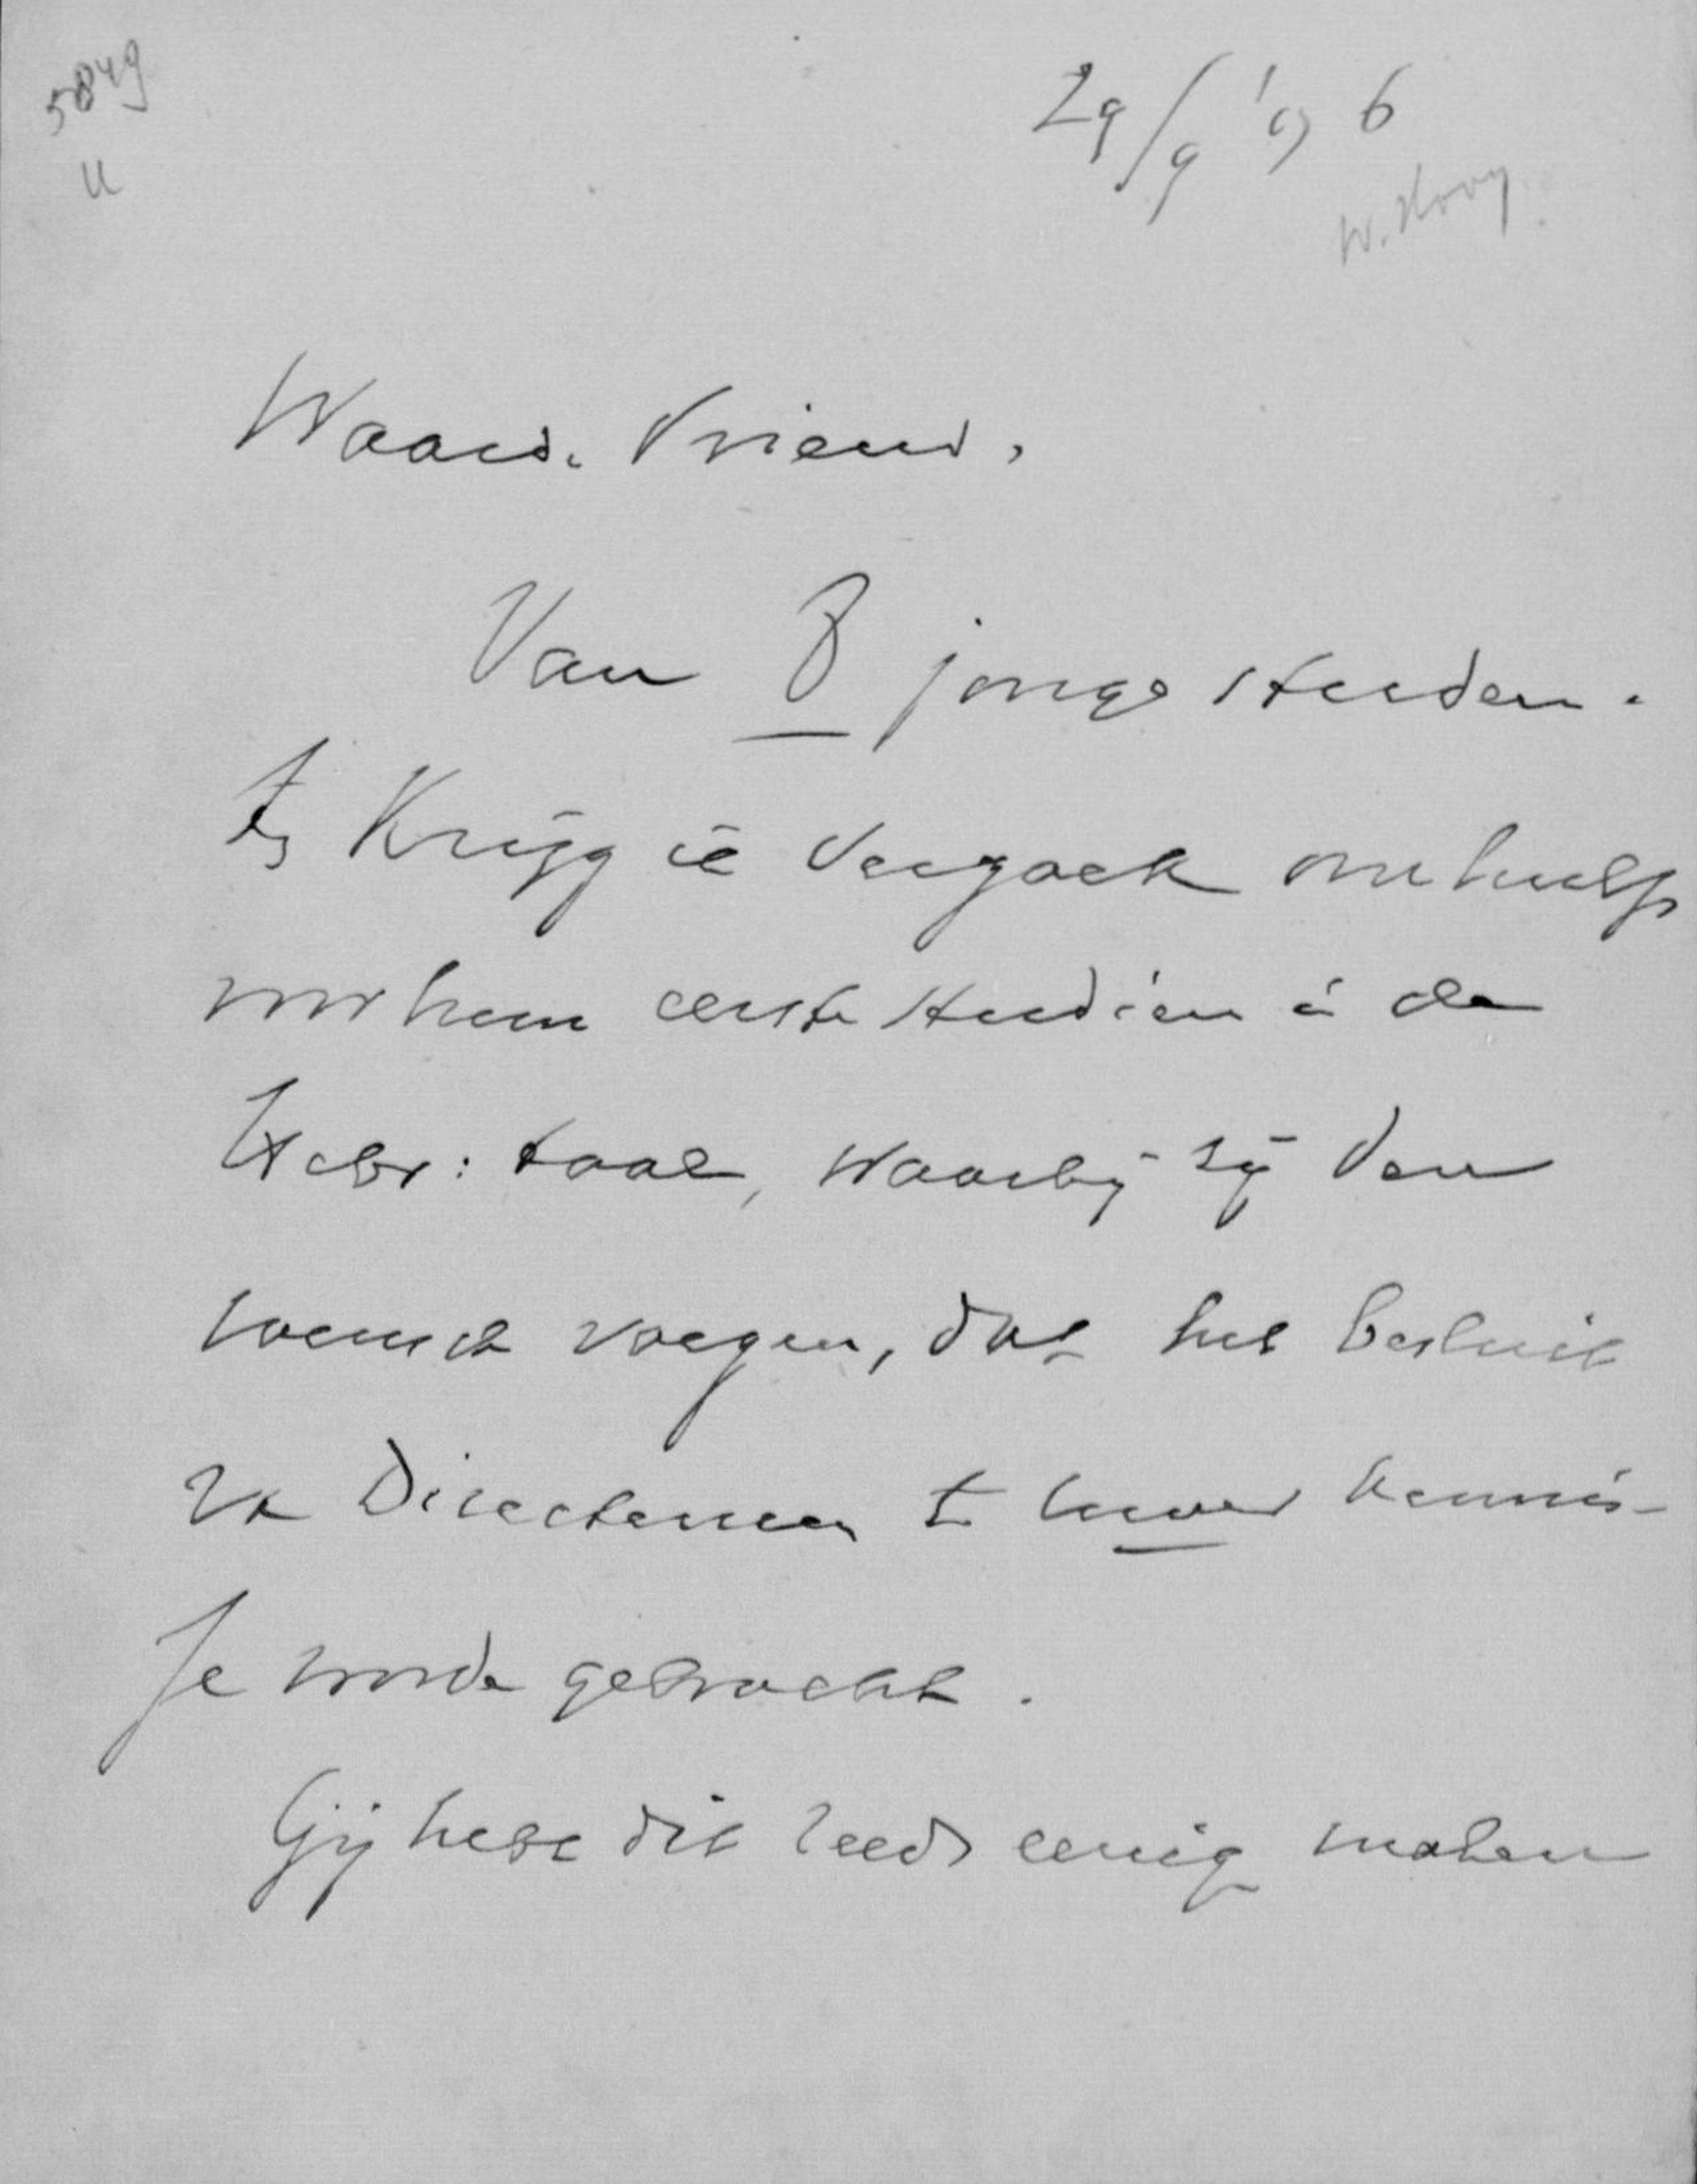 5849
u
29/9 '96
W. Hovy
Waard. Vriend,
Van 8 jonge studen-
ten krijg ik verzoek om hulp
voor hun eerste studiën in de
Hebr: taal, waarbij zij den
wensch voegen, dat het besluit
van Directeuren te hunner kennis-
se worde gebracht.
Gij hebt dit reeds eenige malen